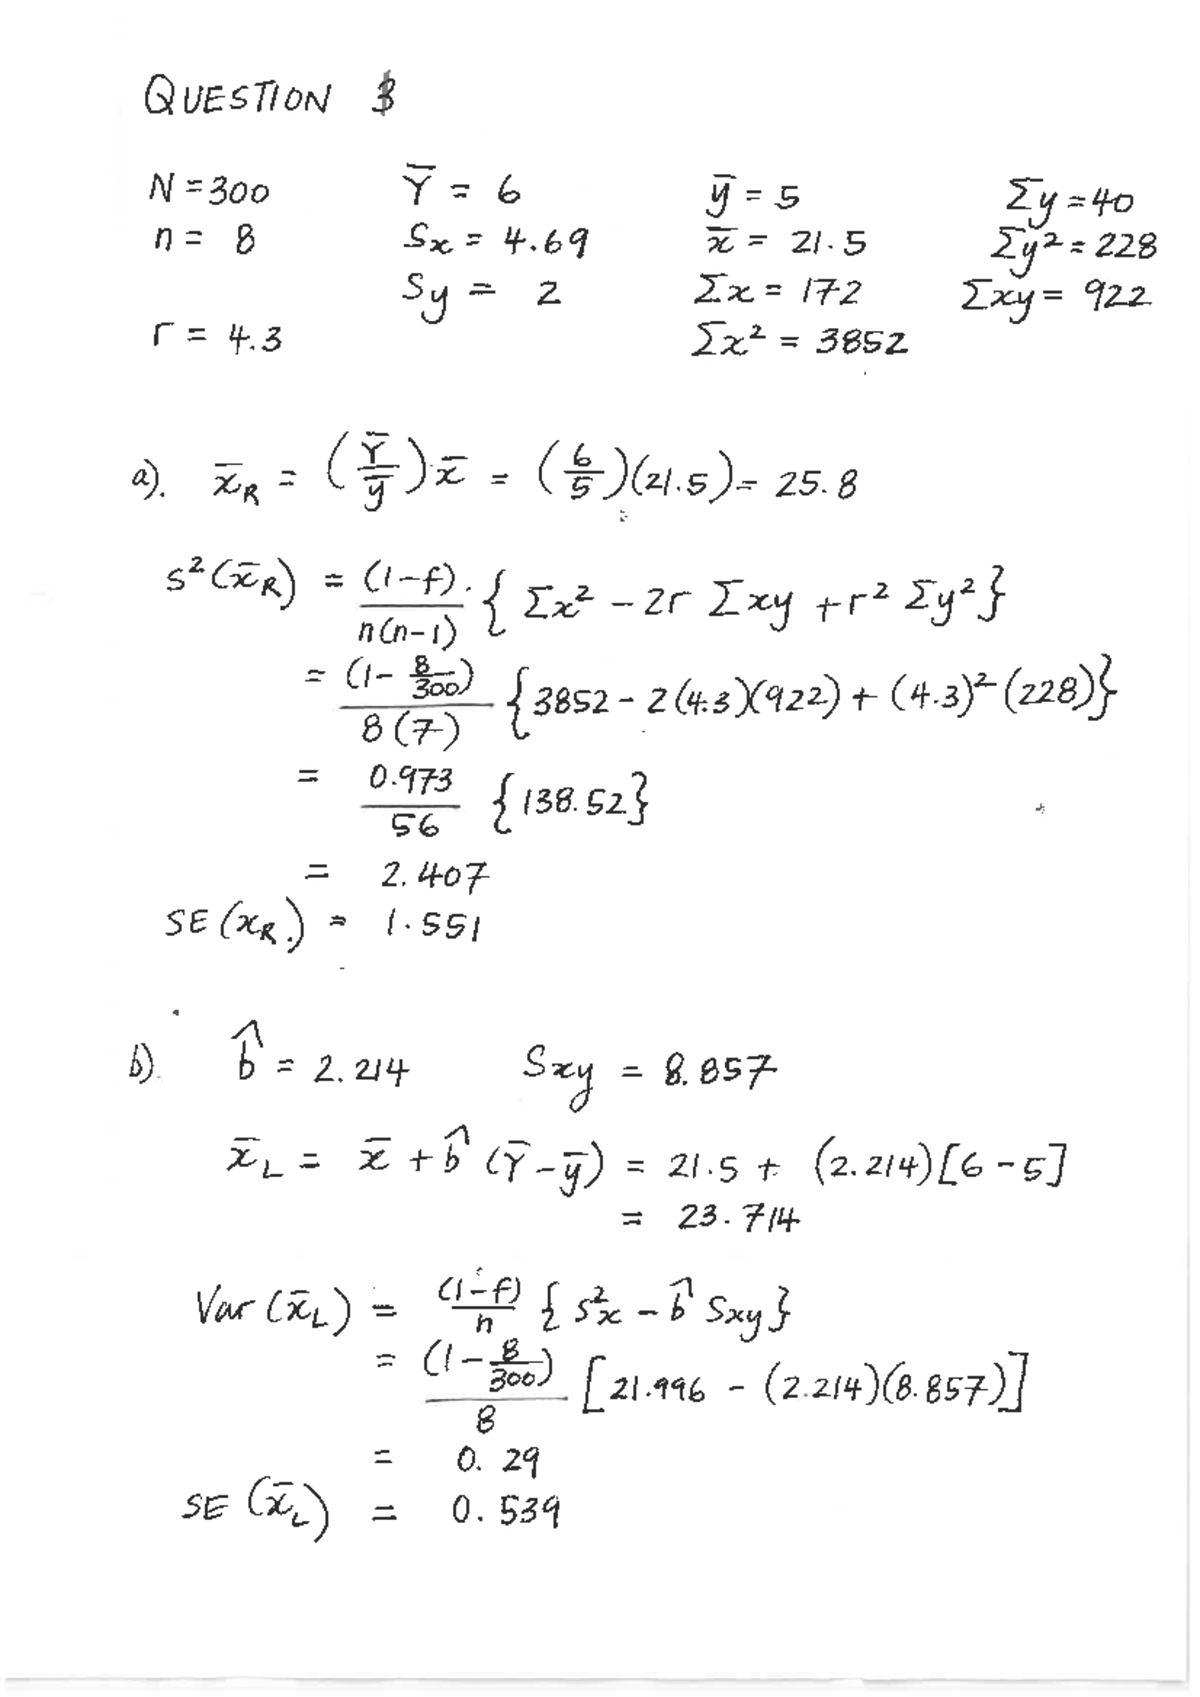 QUESTION 3
N = 300 Ȳ = 6 ȳ = 5 Σy = 40
n = 8 Sx = 4.69 x̄ = 21.5 Σy² = 228
Sy = 2 Σx = 172 Σxy = 922
r = 4.3 Σx² = 3852
a). x̄R = (Ȳ/ȳ) x̄ = (6/5)(21.5) = 25.8
s²(x̄R) = (1-f)/n(n-1) . { Σx² - 2r Σxy + r² Σy² }
= (1 - 8/300)/8(7) { 3852 - 2(4.3)(922) + (4.3)² (228) }
= 0.973/56 { 138.52 }
= 2.407
SE (xR.) = 1.551
b). b̂ = 2.214 Sxy = 8.857
x̄L = x̄ + b̂ (Ȳ - ȳ) = 21.5 + (2.214)[6 - 5]
= 23.714
Var (x̄L) = (1-f)/n { s²x - b̂ Sxy }
= (1 - 8/300)/8 [ 21.996 - (2.214)(8.857) ]
= 0.29
SE (x̄L) = 0.539